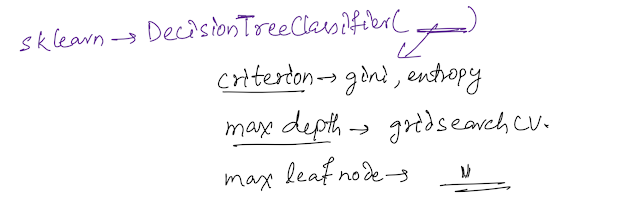 sklearn → DecisionTreeClassifier( ___ )
criterion → gini, entropy
max depth → gridsearchCV.
max leaf node → 〃